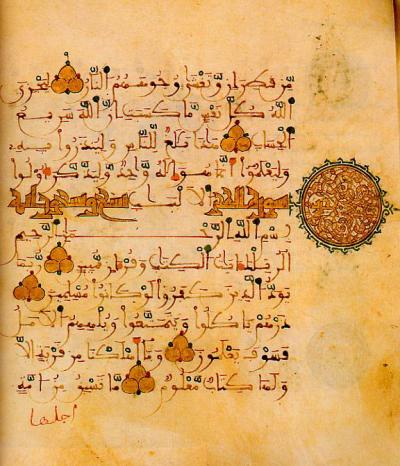 مِّن قَطِرَانٍ وَتَغْشَىٰ وُجُوهَهُمُ النَّارُ لِيَجْزِيَ
اللَّهُ كُلَّ نَفْسٍ مَّا كَسَبَتْ إِنَّ اللَّهَ سَرِيعُ
الْحِسَابِ هَٰذَا بَلَٰغٌ لِّلنَّاسِ وَلِيُنذَرُوا بِهِ
وَلِيَعْلَمُوا أَنَّمَا هُوَ إِلَٰهٌ وَٰحِدٌ وَلِيَذَّكَّرَ أُولُوا
سورة الحجر الْأَلْبَٰبِ تسع وتسعون اية
بِسْمِ اللَّهِ الرَّحْمَٰنِ الرَّحِيمِ
الر تِلْكَ ءَايَٰتُ الْكِتَٰبِ وَقُرْءَانٍ مُّبِينٍ رُّبَمَا
يَوَدُّ الَّذِينَ كَفَرُوا لَوْ كَانُوا مُسْلِمِينَ
ذَرْهُمْ يَأْكُلُوا وَيَتَمَتَّعُوا وَيُلْهِهِمُ الْأَمَلُ
فَسَوْفَ يَعْلَمُونَ وَمَا أَهْلَكْنَا مِن قَرْيَةٍ إِلَّا
وَلَهَا كِتَابٌ مَّعْلُومٌ مَّا تَسْبِقُ مِنْ أُمَّةٍ
اجلها